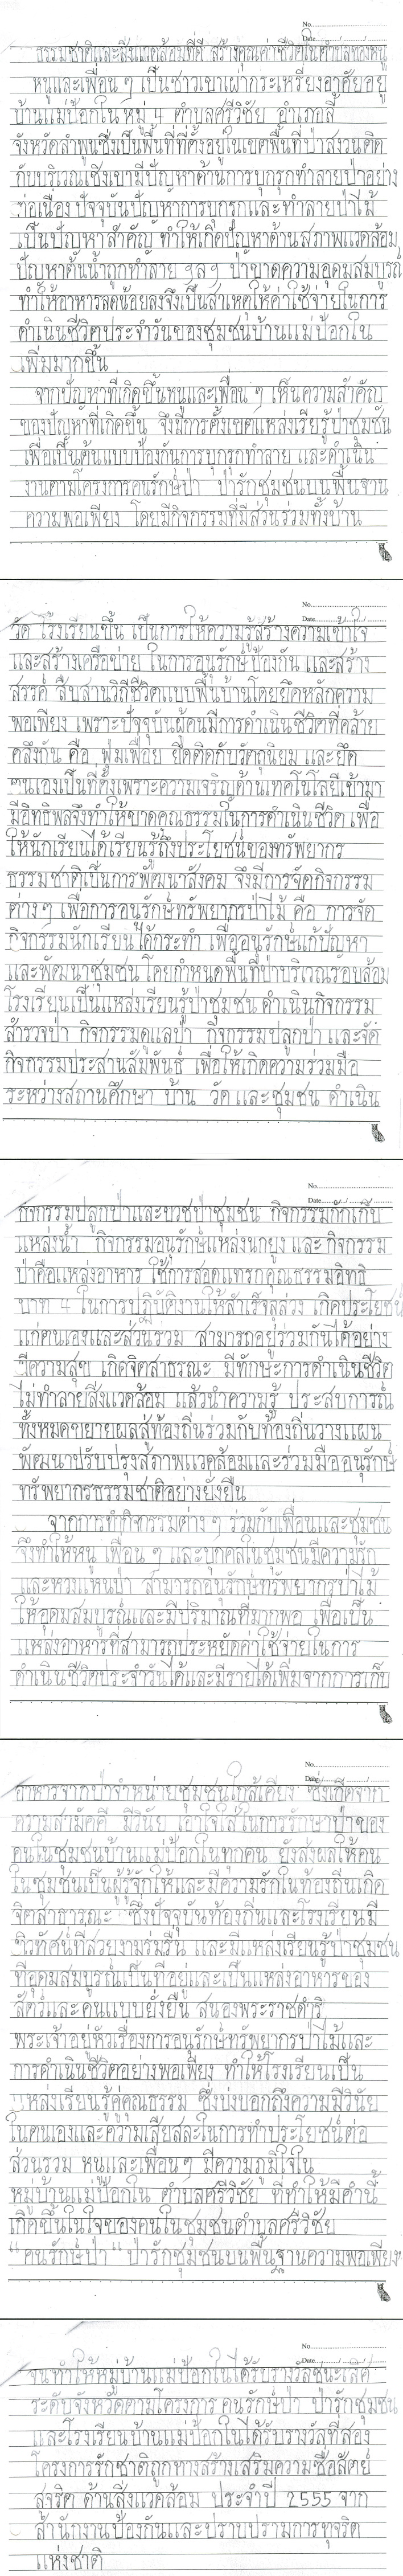 No.
Date
ธรรมชาติและสิ่งแวดล้อมที่ดี สร้างคุณค่าชีวิตในตำบลของหนู
หนูและเพื่อน ๆ เป็นชาวเขาเผ่ากระเหรี่ยงอาศัยอยู่
บ้านแม่ป๊อกใน หมู่ 4 ตำบลศรีวิชัย อำเภอลี้
จังหวัดลำพูนซึ่งเป็นพื้นที่ที่ตั้งอยู่ในเขตพื้นที่ป่าสงวนติด
กับบริเวณเชิงเขามีปัญหาด้านการบุกรุกทำลายป่าอย่าง
ต่อเนื่อง ปัจจุบันปัญหาการบุกรุกและทำลายป่าไม้
เป็นปัญหาสำคัญ ทำให้เกิดปัญหาด้านสภาพแวดล้อม
ปัญหาต้นน้ำถูกทำลาย ฯลฯ ป่าขาดความอุดมสมบูรณ์
ทำให้อาหารลดน้อยลงจึงเป็นสาเหตุให้ค่าใช้จ่ายในการ
ดำเนินชีวิตประจำวันของชุมชนบ้านแม่ป๊อกใน
เพิ่มมากขึ้น
จากปัญหาที่เกิดขึ้นหนูและเพื่อน ๆ เห็นความสำคัญ
ของปัญหาที่เกิดขึ้น จึงมีการตั้งเขตแหล่งเรียนรู้ป่าชุมชน
เพื่อเป็นต้นแบบป้องกันการบุกรุกทำลาย และดำเนิน
งานตามโครงการคนรักษ์ป่า ป่ารักชุมชนบนพื้นฐาน
ความพอเพียง โดยมีกิจกรรมที่มีส่วนร่วมทั้งบ้าน
No.
Date
วัด โรงเรียนขึ้น เป็นการให้ความรู้สร้างความเข้าใจ
และสร้างเครือข่าย ในการอนุรักษ์ป้องกัน และสร้าง
สรรค์ สืบสานวิถีชีวิตแบบพื้นบ้านโดยยึดหลักความ
พอเพียง เพราะปัจจุบันผู้คนมีการดำเนินชีวิตที่คล้าย
คลึงกัน คือ ฟุ่มเฟือย ยึดติดกับวัตถุนิยม และยึด
ตนเองเป็นที่ตั้งเพราะความเจริญด้านเทคโนโลยีเข้ามา
มีอิทธิพลจึงทำให้ขาดคุณธรรมในการดำเนินชีวิต เพื่อ
ให้นักเรียนได้เรียนรู้ถึงประโยชน์ของทรัพยากร
ธรรมชาติเป็นการพัฒนาสังคม จึงมีการจัดกิจกรรม
ต่างๆ เพื่อการอนุรักษ์ทรัพยากรป่าไม้ คือ การจัด
กิจกรรมนักเรียนได้กระทำ เพื่ออนุรักษ์แก้ปัญหา
และพัฒนาชุมชน โดยกำหนดพื้นที่ป่าบริเวณรอบล้อม
โรงเรียนเป็นแหล่งเรียนรู้ป่าชุมชน ดำเนินกิจกรรม
สำรวจป่า กิจกรรมดูแลป่า กิจกรรมปลูกป่า และจัด
กิจกรรมประสานสัมพันธ์ เพื่อให้เกิดความร่วมมือ
ระหว่างสถานศึกษา บ้าน วัด และชุมชน ดำเนิน
No.
Date
กิจกรรมปลูกป่าและบวชป่าชุมชน กิจกรรมกักเก็บ
แหล่งน้ำ กิจกรรมอนุรักษ์แหล่งนกยูง และ กิจกรรม
ป่าคือแหล่งอาหาร ใช้การสอดแทรกคุณธรรมอิทธิ
บาท 4 ในการปฏิบัติงานให้สำเร็จลุล่วง เกิดประโยชน์
แก่ตนเองและส่วนรวม สามารถอยู่ร่วมกันได้อย่าง
มีความสุข เกิดจิตสาธารณะ มีทักษะการดำเนินชีวิต
ไม่ทำลายสิ่งแวดล้อม แล้วนำความรู้ ประสบการณ์
ทั้งหมดขยายผลสู่ท้องถิ่นร่วมกับท้องถิ่นวางแผน
พัฒนาปรับปรุงสภาพแวดล้อมและร่วมมืออนุรักษ์
ทรัพยากรธรรมชาติอย่างยั่งยืน
จากการทำกิจกรรมต่าง ๆ ร่วมกับเพื่อนและชุมชน
จึงทำให้หนู เพื่อน ๆ และบุคคลในชุมชนมีความรัก
และหวงแหนป่า สามารถอนุรักษ์ทรัพยากรป่าไม้
ให้อุดมสมบูรณ์และมีปริมาณที่มากพอ เพื่อเป็น
แหล่งอาหารที่สามารถประหยัดค่าใช้จ่ายในการ
ดำเนินชีวิตประจำวันได้และมีรายได้เพิ่มจากการเก็บ
No.
Date
อาหารจากป่าจำหน่ายชุมชนใกล้เคียง ซึ่งเกิดจาก
ความสามัคคี มีวินัย เอาใจใส่ในการรักษาป่าของ
คนในชุมชนบ้านแม่ป๊อกในทุกคน ยังส่งผลให้คน
ในชุมชนเป็นผู้รู้จักให้และมีความรักในท้องถิ่นเกิด
จิตสาธารณะ ซึ่งปัจจุบันท้องถิ่นและโรงเรียนมี
ทิวทัศน์ที่สวยงามร่มรื่น และมีแหล่งเรียนรู้ป่าชุมชน
ที่อุดมสมบูรณ์เป็นที่อยู่และเป็นแหล่งอาหารของ
สัตว์และคนแบบยั่งยืน สนองพระราชดำริ
พระเจ้าอยู่หัวเรื่องการอนุรักษ์ทรัพยากรป่าไม้และ
การดำเนินชีวิตอย่างพอเพียง ทำให้โรงเรียนเป็น
แหล่งเรียนรู้คู่คุณธรรม ซึ่งบ่งบอกถึงความมีวินัย
ในตนเองและความเสียสละในการทำประโยชน์ต่อ
ส่วนรวม หนูและเพื่อนๆ มีความภูมิใจใน
หมู่บ้านแม่ป๊อกใน ตำบลศรีวิชัย ที่ทำให้มีคำนี้
เกิดขึ้นในใจของคนในชุมชนตำบลศรีวิชัย
“ คนรักษ์ป่า “ ป่ารักชุมชนบนพื้นฐานความพอเพียง
No.
Date
จนทำให้หมู่บ้านแม่ป๊อกในได้รับรางวัลชนะเลิศ
ระดับจังหวัดตามโครงการ คนรักษ์ป่า ป่ารักชุมชน
และโรงเรียนบ้านแม่ป๊อกในได้รับรางวัลที่สอง
โครงการรักชาติถูกทางสร้างเสริมความซื่อสัตย์
สุจริต ด้านสิ่งแวดล้อม ประจำปี 2555 จาก
สำนักงานป้องกันและปราบปรามการทุจริต
แห่งชาติ